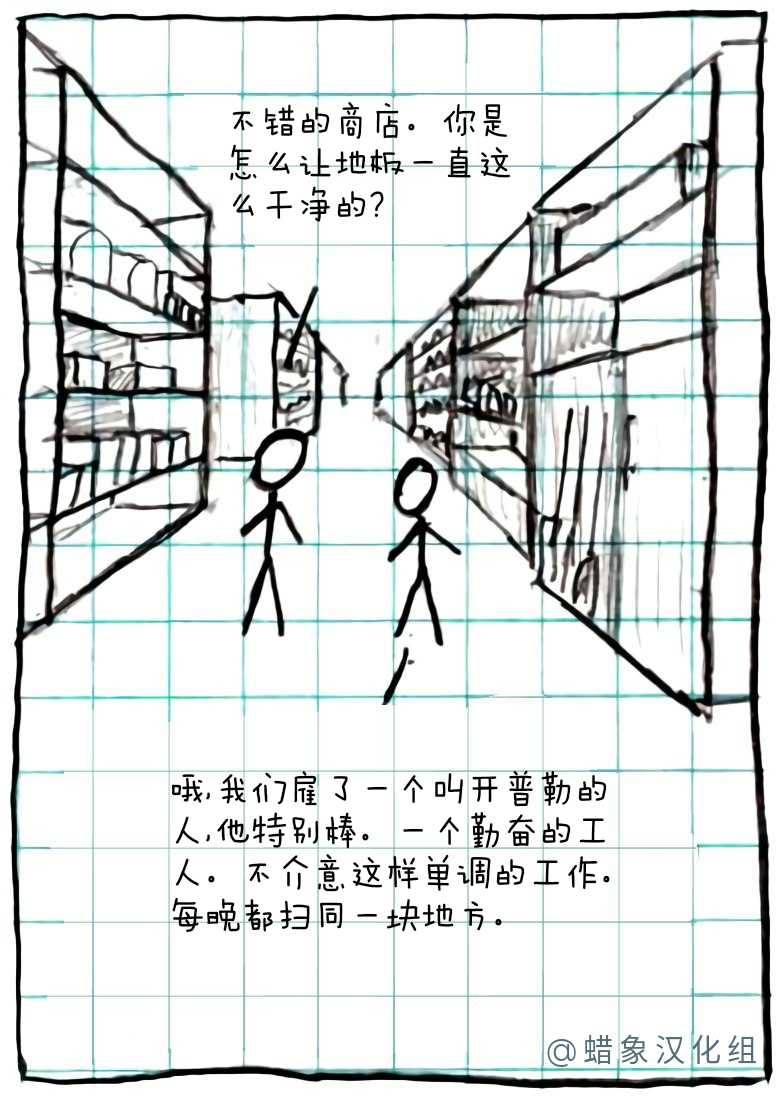 不错的商店。你是
怎么让地板一直这
么干净的?
哦,我们雇了一个叫开普勒的
人,他特别棒。一个勤奋的工
人。不介意这样单调的工作。
每晚都扫同一块地方。
@蜡象汉化组